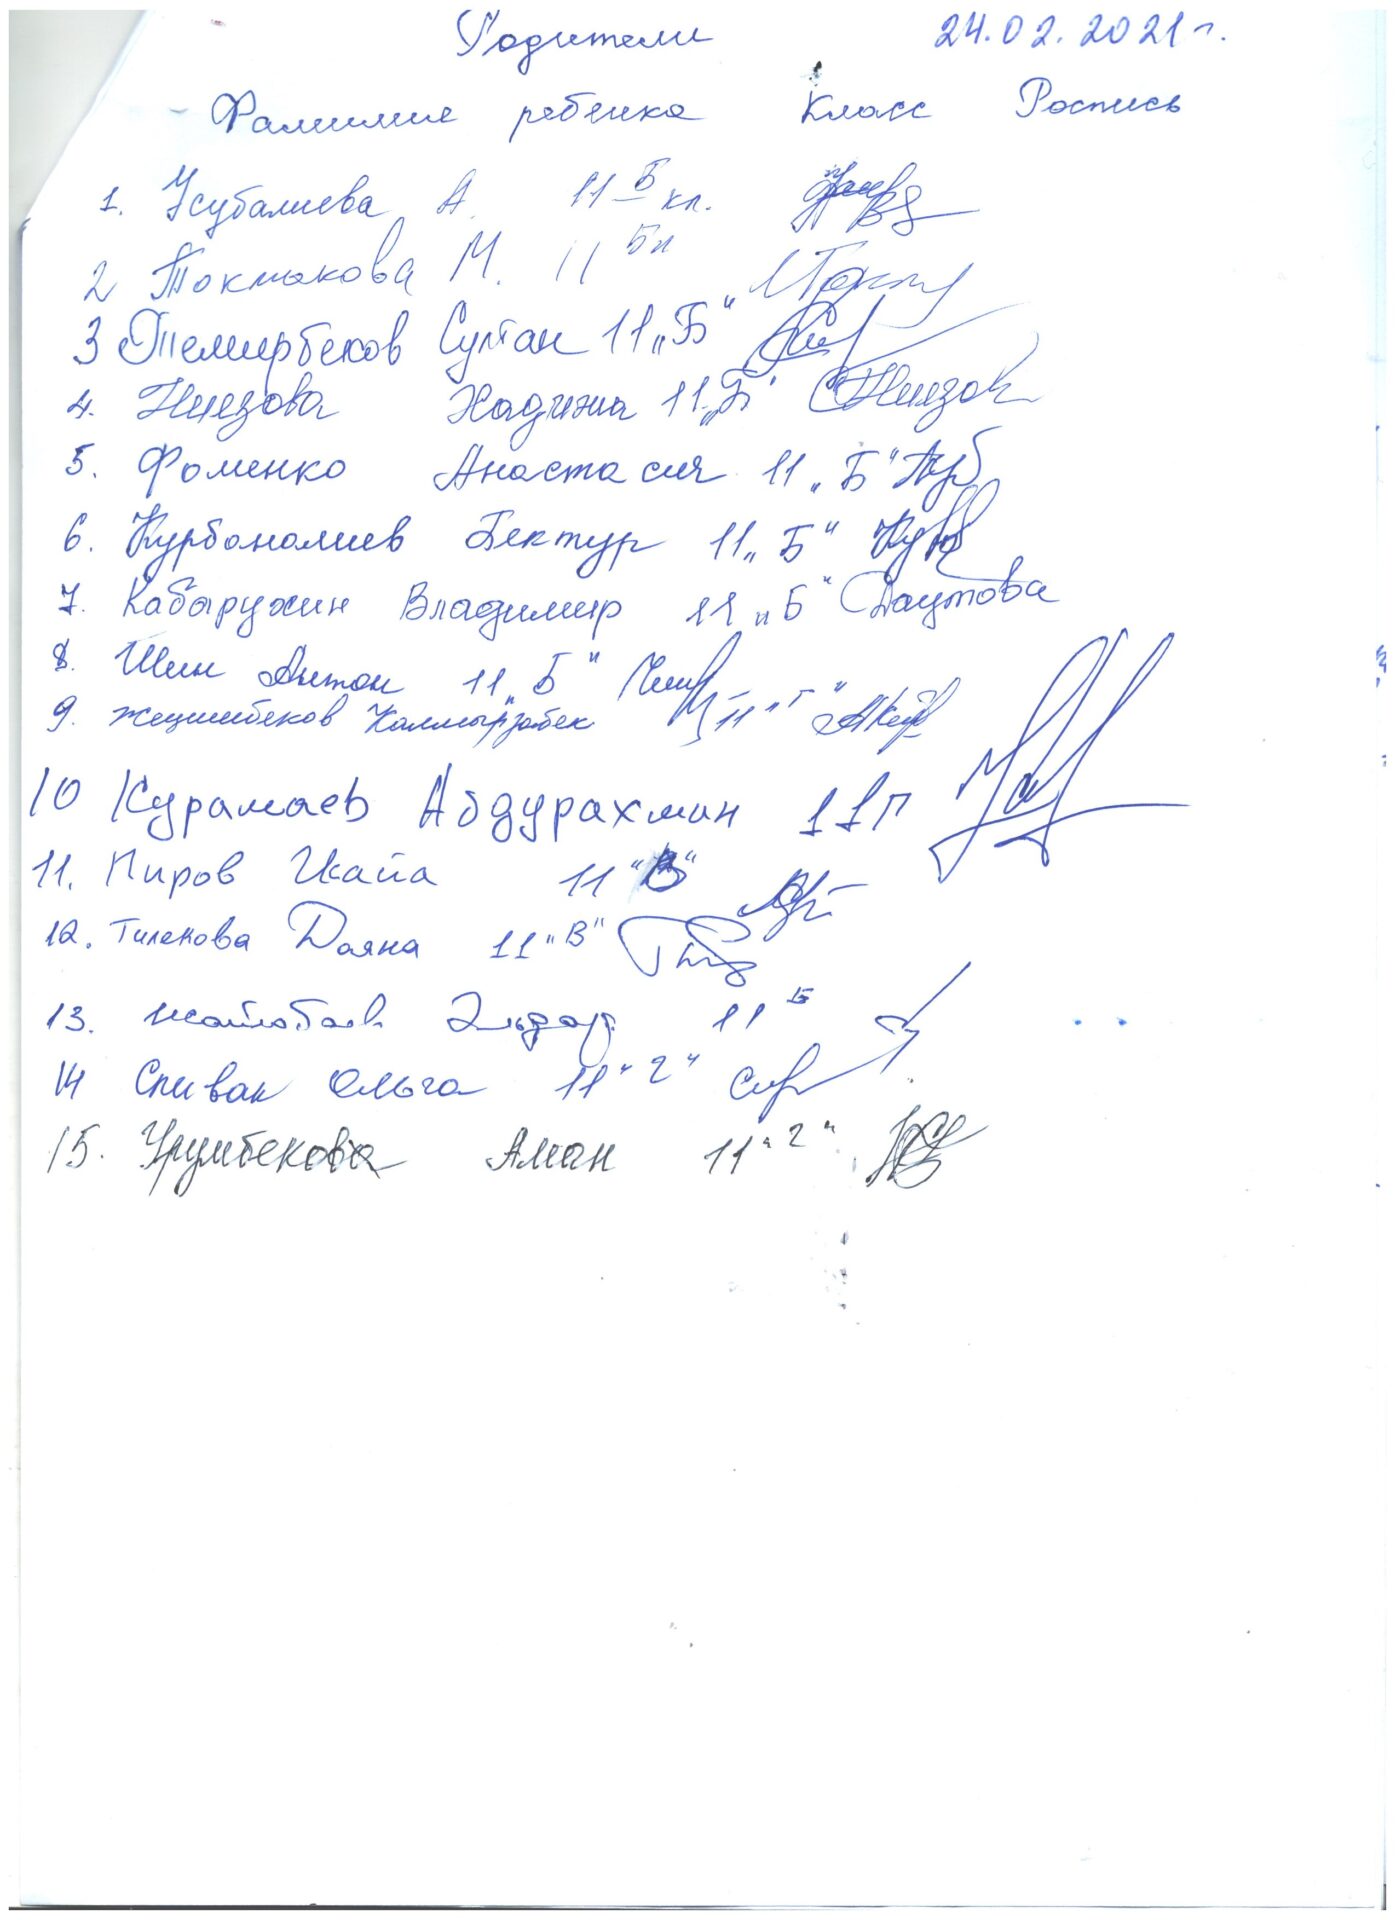 Родители 24.02.2021г.
Фамилие ребенка Класс Роспись
1. Усубалиева А. 11 Б кл.
2 Токтакова М. 11 Бкл
3 Темирбеков Султан 11 „Б"
4. Ниезова Хадича 11 „Б"
5. Фоменко Анастасия 11 „Б"
6. Курбоналиев Бектур 11 „Б"
7. Кабыружин Владимир 11 „Б" Даутова
8. Шин Антон 11 „Б"
9. Жецшибеков Калмырзабек 11 "Г"
10 Курамаев Абдурахман 11 г
11. Пиров Икайа 11 "В"
12. Тилекова Даяна 11 "В"
13. Эльдар 11 Б
14 Спивак Ольга 11 "г"
15. Урумбекова Аман 11 "г"